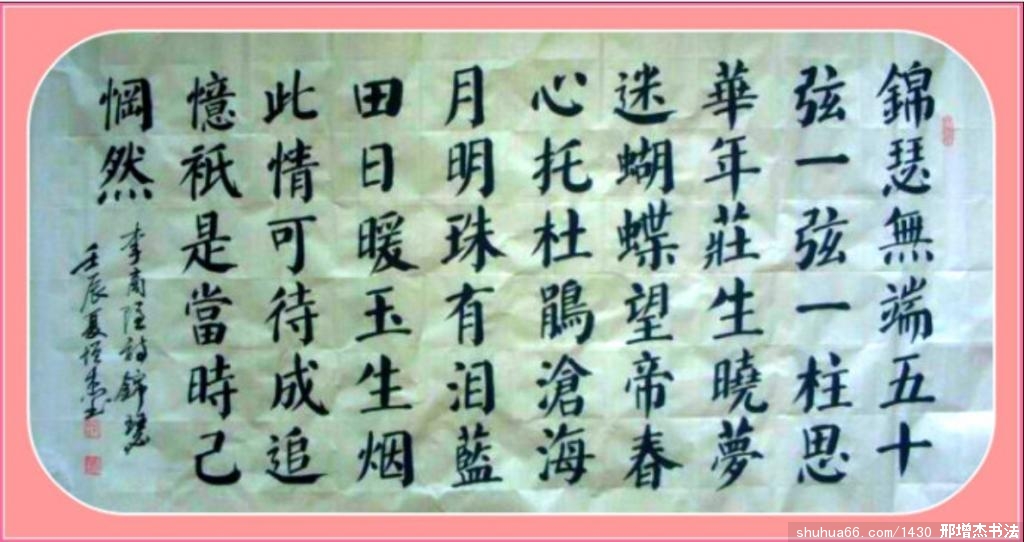 錦瑟無端五十
弦一弦一柱思
華年莊生曉夢
迷蝴蝶望帝春
心托杜鵑滄海
月明珠有泪藍
田日暖玉生烟
此情可待成追
憶祇是當時己
惘然
李商隱詩錦瑟
壬辰夏增杰书
shuhua66.com/1430 邢增杰书法